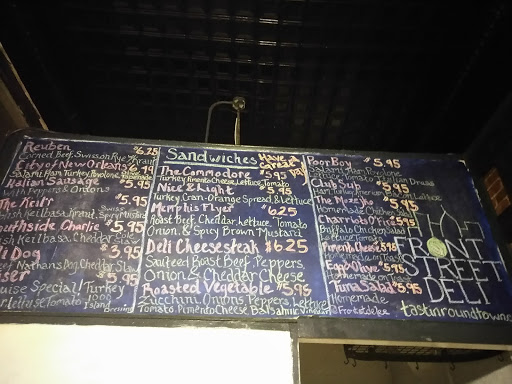 Reuben $6.25
Corned Beef, Swiss on Rye, Kraut
City of New Orleans 6.49
Salami, Ham, Turkey, Provolone
Italian Sausage $5.95
with Peppers & Onions
The Keirr $5.95
Kielbasa
Southside Charlie $5.95
Kielbasa, Cheddar, Slaw
Dog $3.95
Nathans Dog, Cheddar, Slaw
$5.95
Special! Turkey
Lettuce Tomato 1000 Island dressing
Sandwiches Have a Great Day
The Commodore $5.95
Turkey, Pimento Cheese, Lettuce, Tomato
Nice & Light $5.95
Turkey, Cran-Orange Spread, & Lettuce
Memphis Flyer $6.25
Roast Beef, Cheddar, Lettuce, Tomato,
Onion, & Spicy Brown Mustard
Deli Cheesesteak $6.25
Sauteed Roast Beef, Peppers,
Onion & Cheddar Cheese
Roasted Vegetable $5.95
Zucchini, Onions, Peppers, Lettuce
Tomato Pimento Cheese Balsamic Vinegar
Poor Boy $5.95
Salami, Ham, Provolone
Tomato, Italian Dress
Club Sub $5.95
Ham, Turkey, American
The Memphis $5.95
Homemade Chicken
$5.95
Buffalo Chicken Salad
Lettuce Tomato
Pimento Cheese 5.95
Homemade on Toast
Egg & Olive $5.95
Homemade
Tuna Salad $5.95
Homemade
FRONT
STREET
DELI
tastinroundtown.com